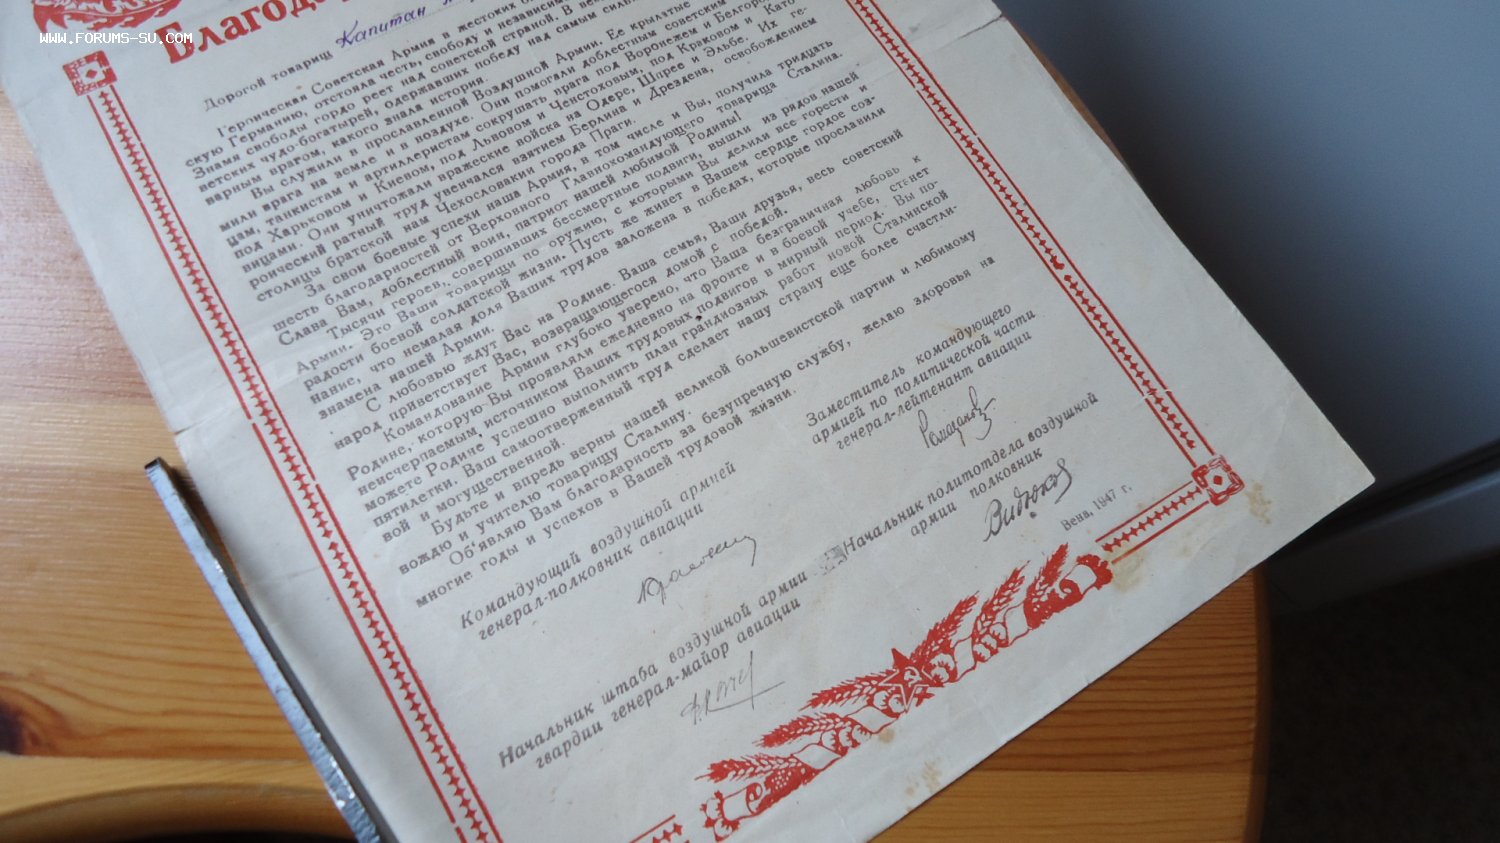 WWW.FORUMS-SU.COM
Благодар
Дорогой товарищ Капитан
Героическая Советская Армия в жестоких
скую Германию, отстояла честь, свободу и независимо
Знамя свободы гордо реет над советской страной. В ве
ветских чудо-богатырей, одержавших победу над самым силь
варным врагом, какого знала история.
Вы служили в прославленной Воздушной Армии. Ее крылатые
мили врага на земле и в воздухе. Они помогали доблестным советским
цам, танкистам и артиллеристам сокрушать врага под Воронежем и Белгоро
под Харьковом и Киевом, под Львовом и Ченстоховым, под Краковом и Като-
вицами. Они уничтожали вражеские войска на Одере, Шпрее и Эльбе. Их ге-
роический ратный труд увенчался взятием Берлина и Дрездена, освобождением
столицы братской нам Чехословакии города Праги.
За свои боевые успехи наша Армия, в том числе и Вы, получила тридцать
шесть благодарностей от Верховного Главнокомандующего товарища Сталина.
Слава Вам, доблестный воин, патриот нашей любимой Родины!
Тысячи героев, совершивших бессмертные подвиги, вышли из рядов нашей
Армии. Это Ваши товарищи по оружию, с которыми Вы делили все горести и
радости боевой солдатской жизни. Пусть же живет в Вашем сердце гордое соз-
нание, что немалая доля Ваших трудов заложена в победах, которые прославили
знамена нашей Армии.
С любовью ждут Вас на Родине. Ваша семья, Ваши друзья, весь советский
народ приветствует Вас, возвращающегося домой с победой.
Командование Армии глубоко уверено, что Ваша безграничная любовь к
Родине, которую Вы проявляли ежедневно на фронте и в боевой учебе, станет
неисчерпаемым источником Ваших трудовых подвигов в мирный период. Вы по-
можете Родине успешно выполнить план грандиозных работ новой Сталинской
пятилетки. Ваш самоотверженный труд сделает нашу страну еще более счастли-
вой и могущественной.
Будьте и впредь верны нашей великой большевистской партии и любимому
вождю и учителю товарищу Сталину.
Об'являю Вам благодарность за безупречную службу, желаю здоровья на
многие годы и успехов в Вашей трудовой жизни.
Командующий воздушной армией
генерал-полковник авиации
Заместитель командующего
армией по политической части
генерал-лейтенант авиации
Начальник штаба воздушной армии
гвардии генерал-майор авиации
Начальник политотдела воздушной
армии полковник
Вена, 1947 г.